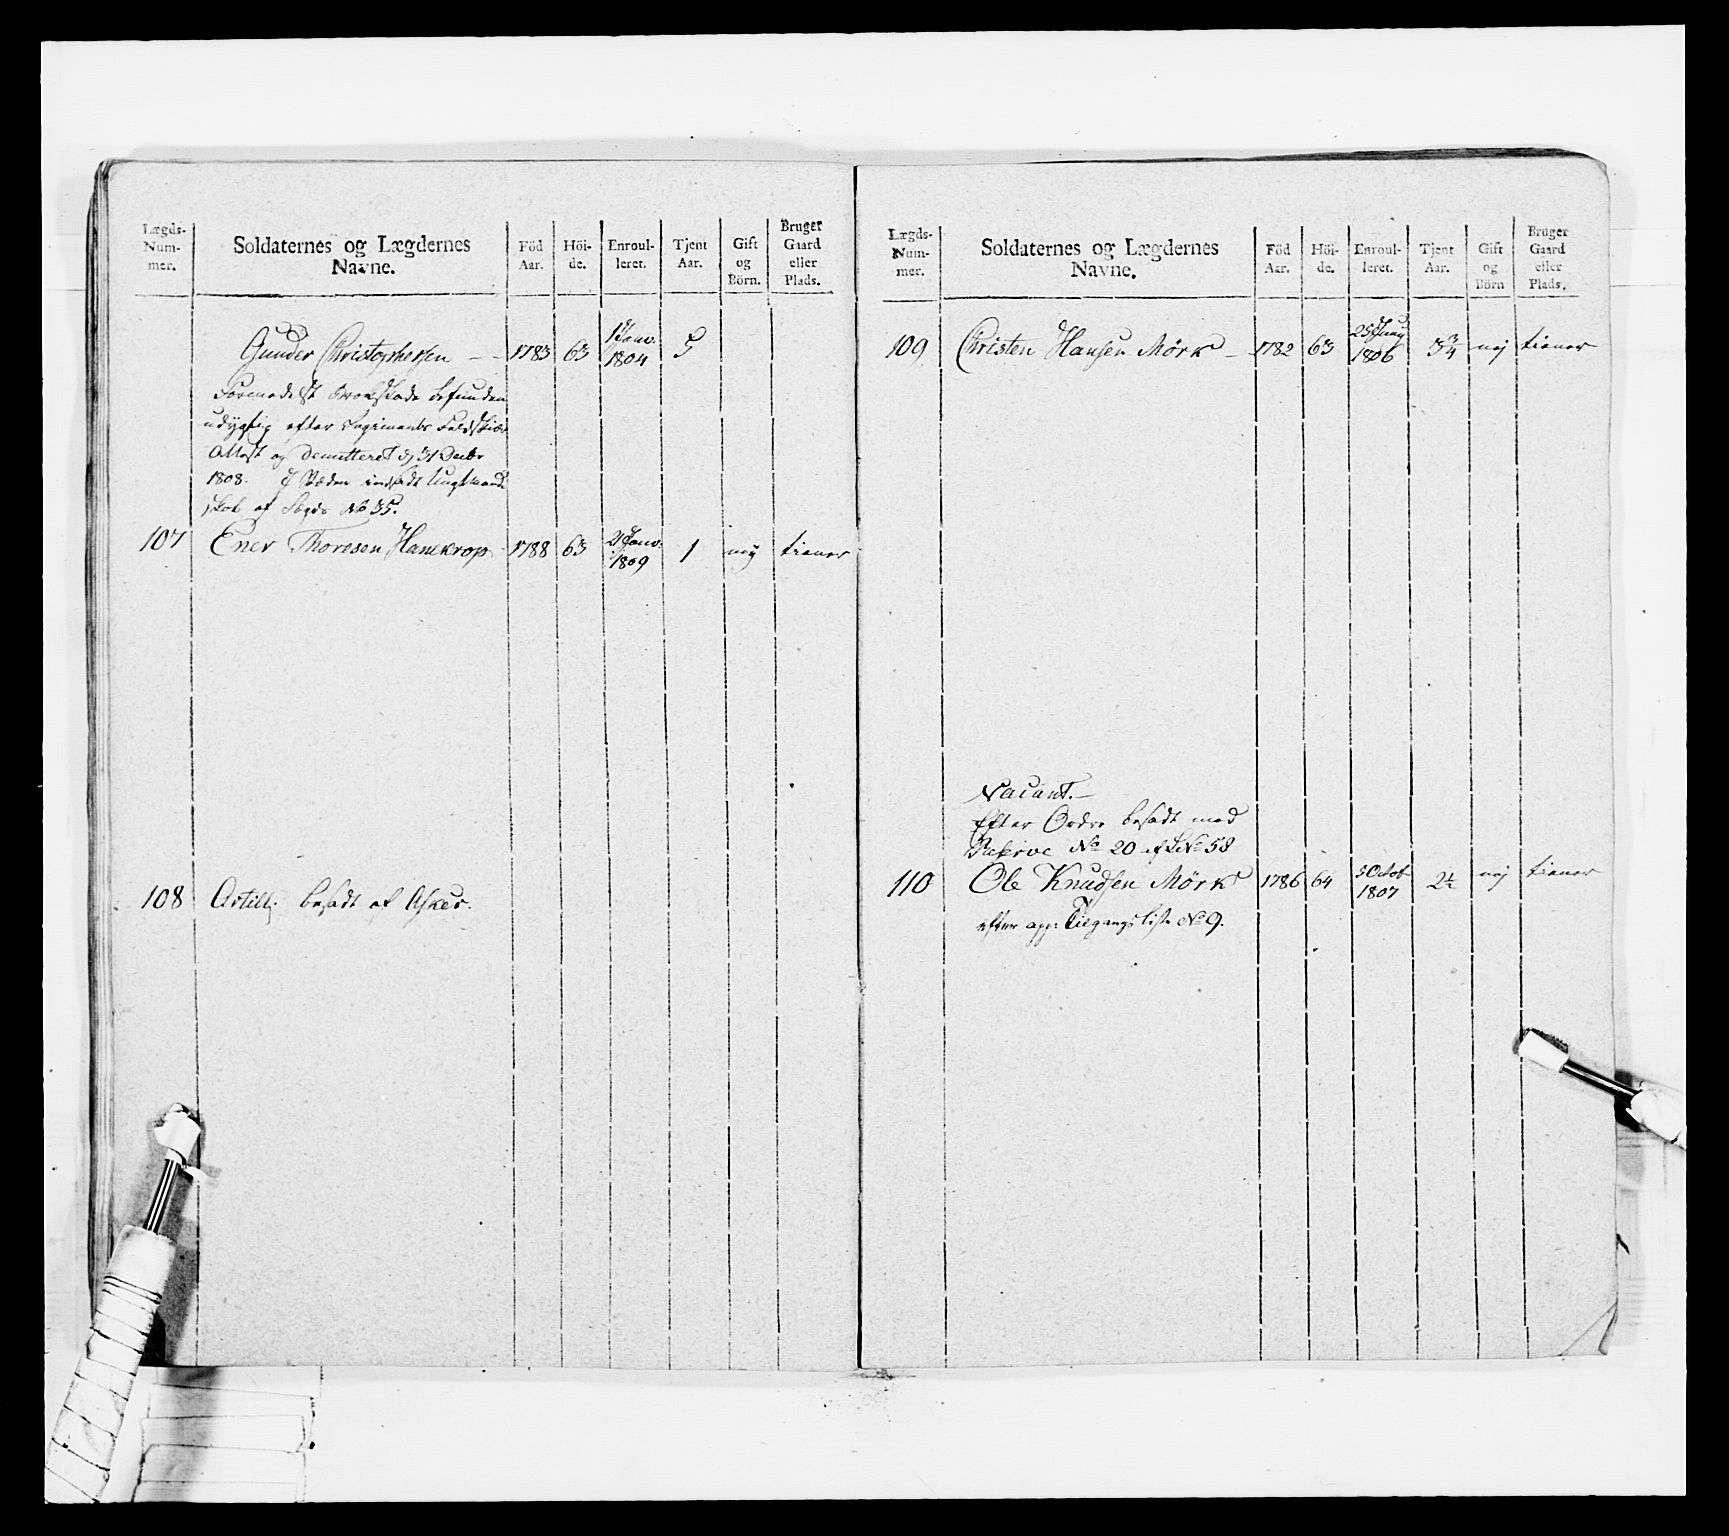 Lægds-Num-mer.
Soldaternes og Lægdernes Navne.
Föd Aar.
Höi-de.
Enroul-leret.
Tjent Aar.
Gift og Börn.
Bruger Gaard eller Plads.
Gunder Christophersen - - 1783 63 1 Janv. 1804 5
Formedelst Brokskade befunden
udygtig efter Regiments Feldskiær
Attest og demitteret d 31 Decbr
1808. I Steden indsadt
af Lægds No 35.
107 Ener Thoresen Hanekrop 1788 63 2 Janv. 1809 1 nej tiener
108 Artill: besadt af Asker.
Lægds-Num-mer.
Soldaternes og Lægdernes Navne.
Föd Aar.
Höi-de.
Enroul-leret.
Tjent Aar.
Gift og Börn
Bruger Gaard eller Plads.
109 Christen Hansen Mörk - 1782 63 25 Juny 1806 3 3/4 nej tiener
Vacant. -
Efter Ordre besadt med
Reserve No 20 af L No 58
110 Ole Knudsen Mörk 1786 64 5 Octob 1807 2 1/4 nej tiener
efter app: Tilgangs Liste No 9.